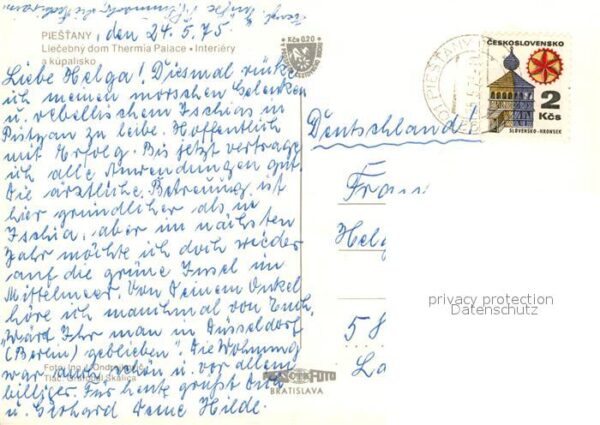 den 24.5.75
PIEŠŤANY
Liečebný dom Thermia Palace • Interiéry
a kúpalisko
Liebe Helga! Diesmal rücke
ich meinen morschen Gelenken
u. rebellischem Ischias in
Pistyan zu leibe. Hoffentlich
mit Erfolg. Bis jetzt vertrage
ich alle Anwendungen gut.
Die ärztliche Betreuung ist
hier gründlicher als in
Ischia, aber im nächsten
Jahr möchte ich doch wieder
auf die grüne Insel im
Mittelmeer. Von Deinem Onkel
höre ich manchmal von Euch.
"Wärd Ihr man in Düsseldorf
(Berlin) geblieben". Die Wohnung
war auch schön u. vor allem
billiger. Für heute grüßt Dich
u. Gerhard Deine Hilde.
Foto: Ing. J. Ondrejkovič
Tlač: Grafobal Skalica
Kčs 0,20
PIEŠŤANY
ČESKOSLOVENSKO
2
Kčs
SLOVENSKO-HRONSEK
Deutschland!
Frau
Helg
58
La
privacy protection
Datenschutz
FOTO
BRATISLAVA